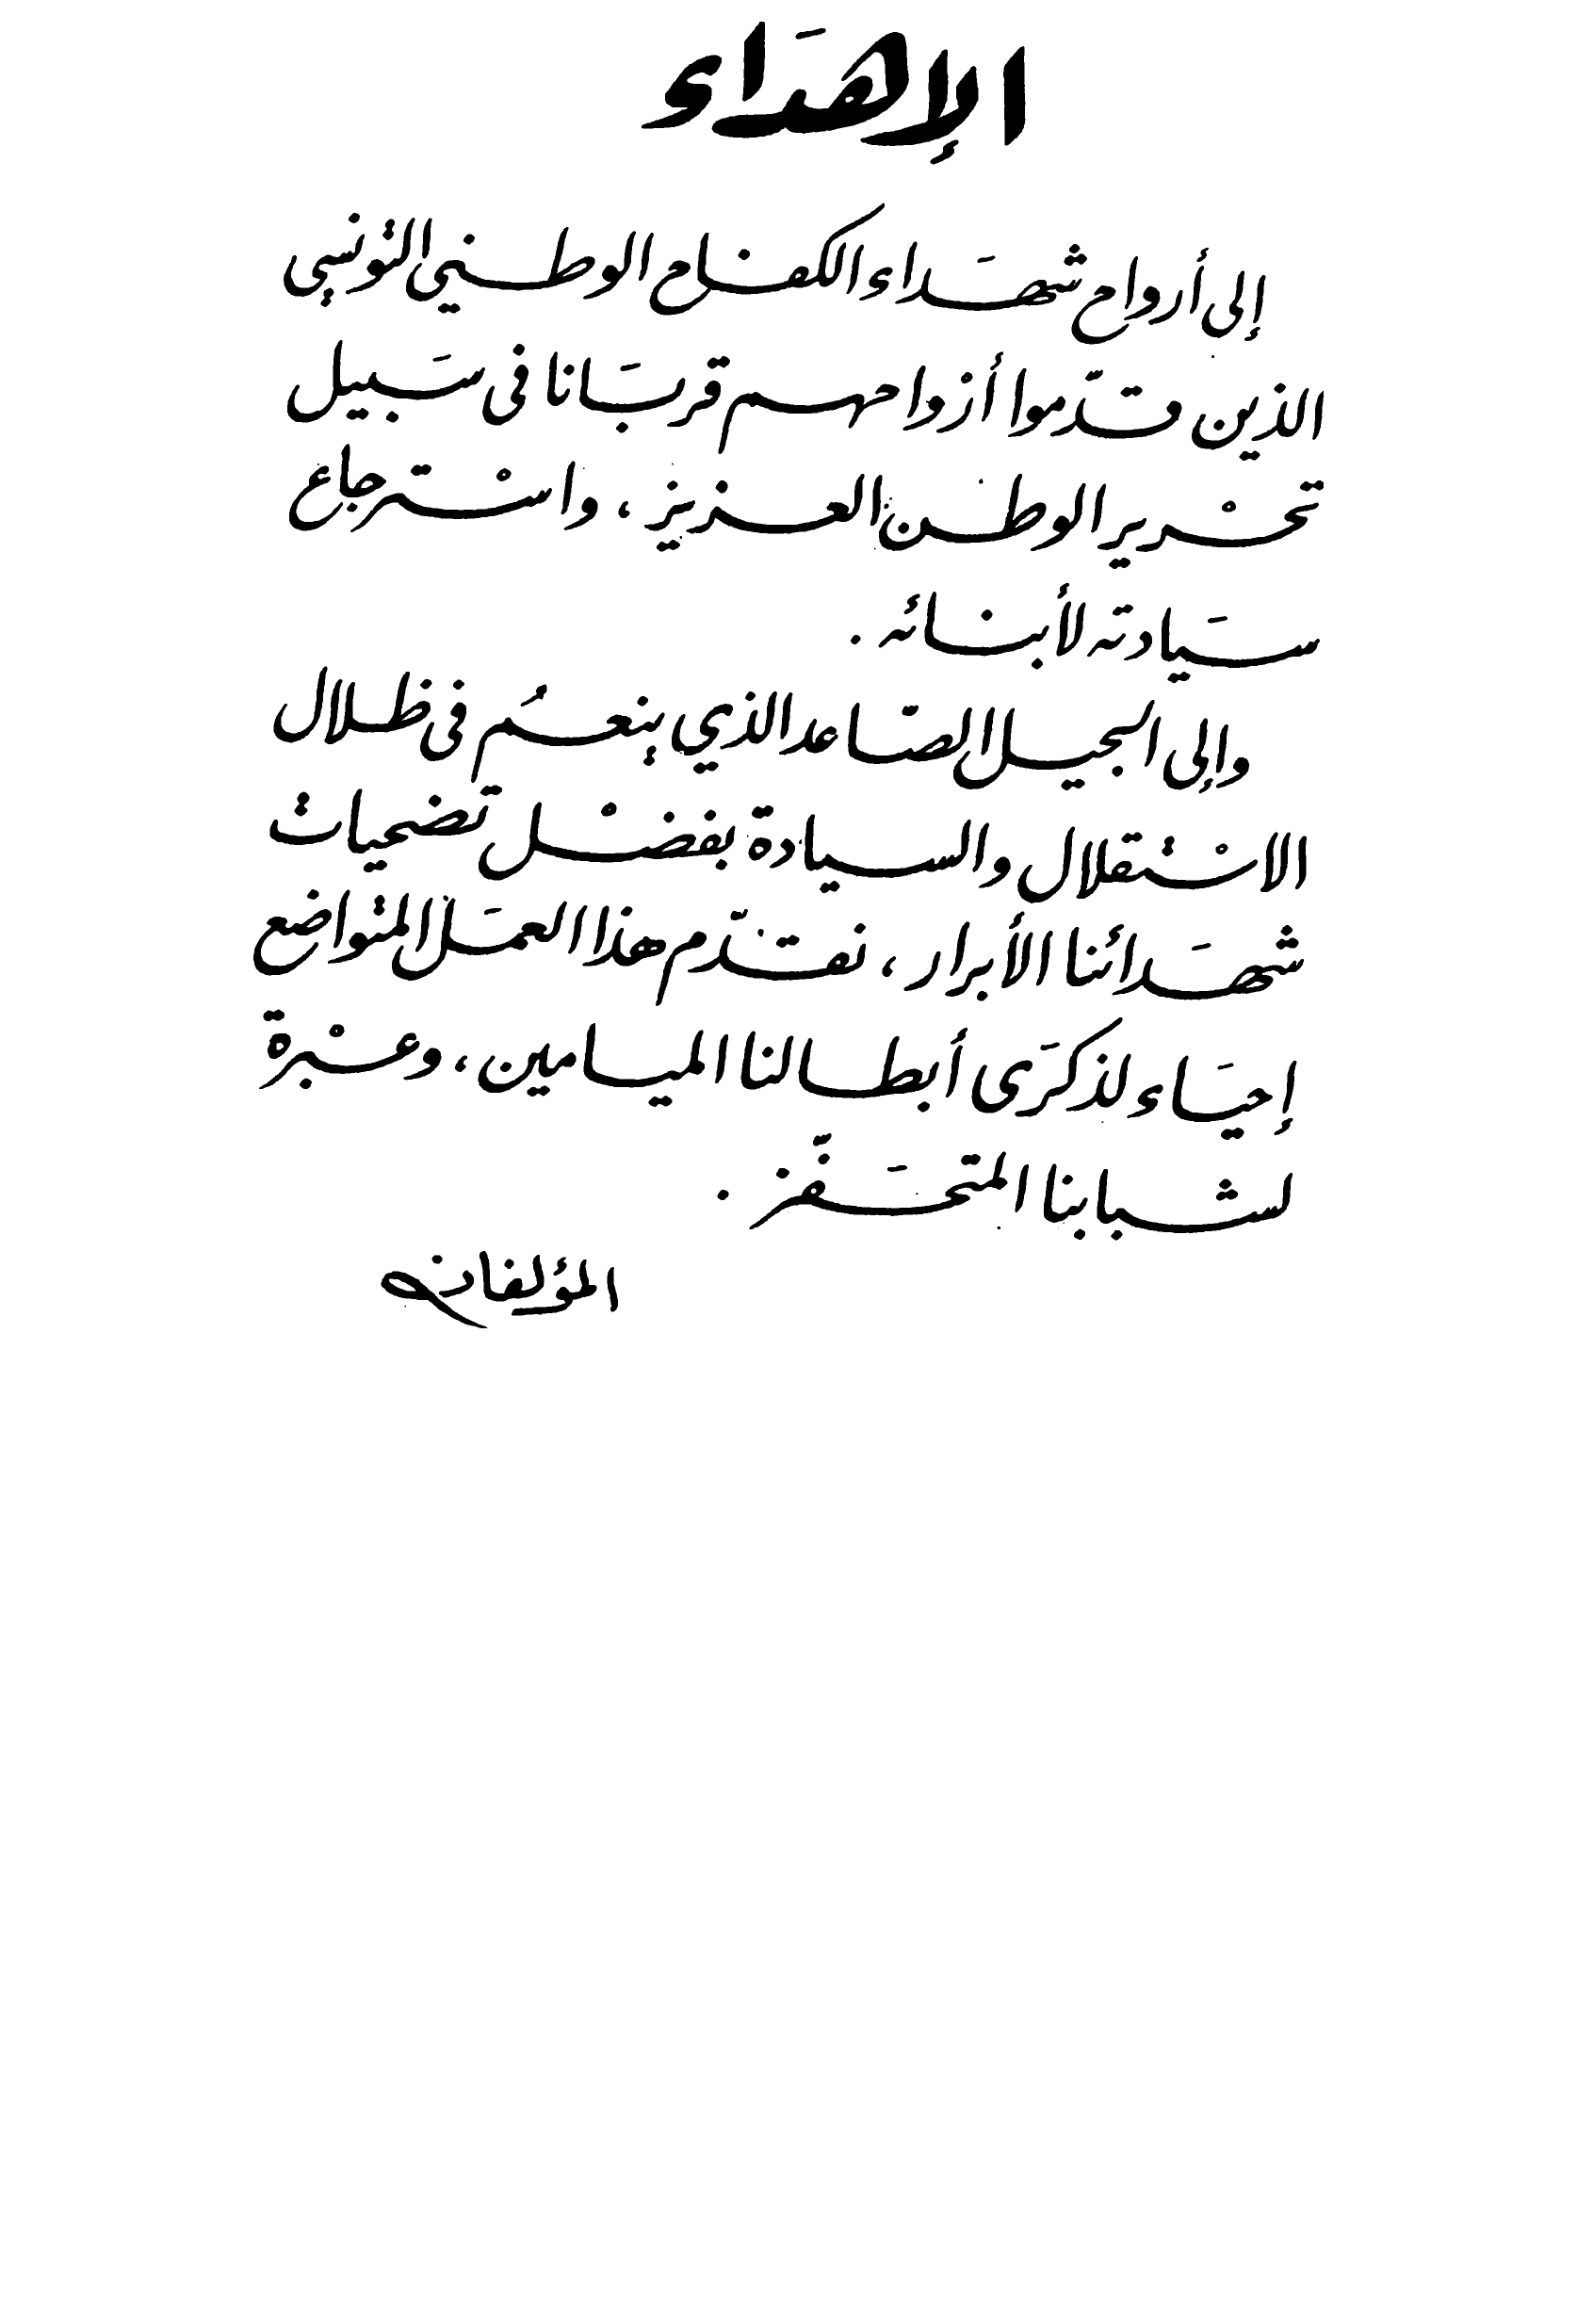 الإهدَاء
إلى أرواح شهَداء الكفاح الوطني التونسي
الذين قدّموا أرْواحهم قربَانا في سَبيل
تحْرير الوطن العزيز، واسْترجاع
سَيادته لأبنائه.
وإلى الجيل الصّاعد الذي ينعمُ في ظلال
الاسْتقلال والسيادة بفضْل تضحيات
شهَدائنا الأبرار، نقدّم هذا العمَل المتواضع
إحيَاء لذكرَى أبطالنا الميامين، وعبْرة
لشبابنا المتحَفّز.
المؤلفان